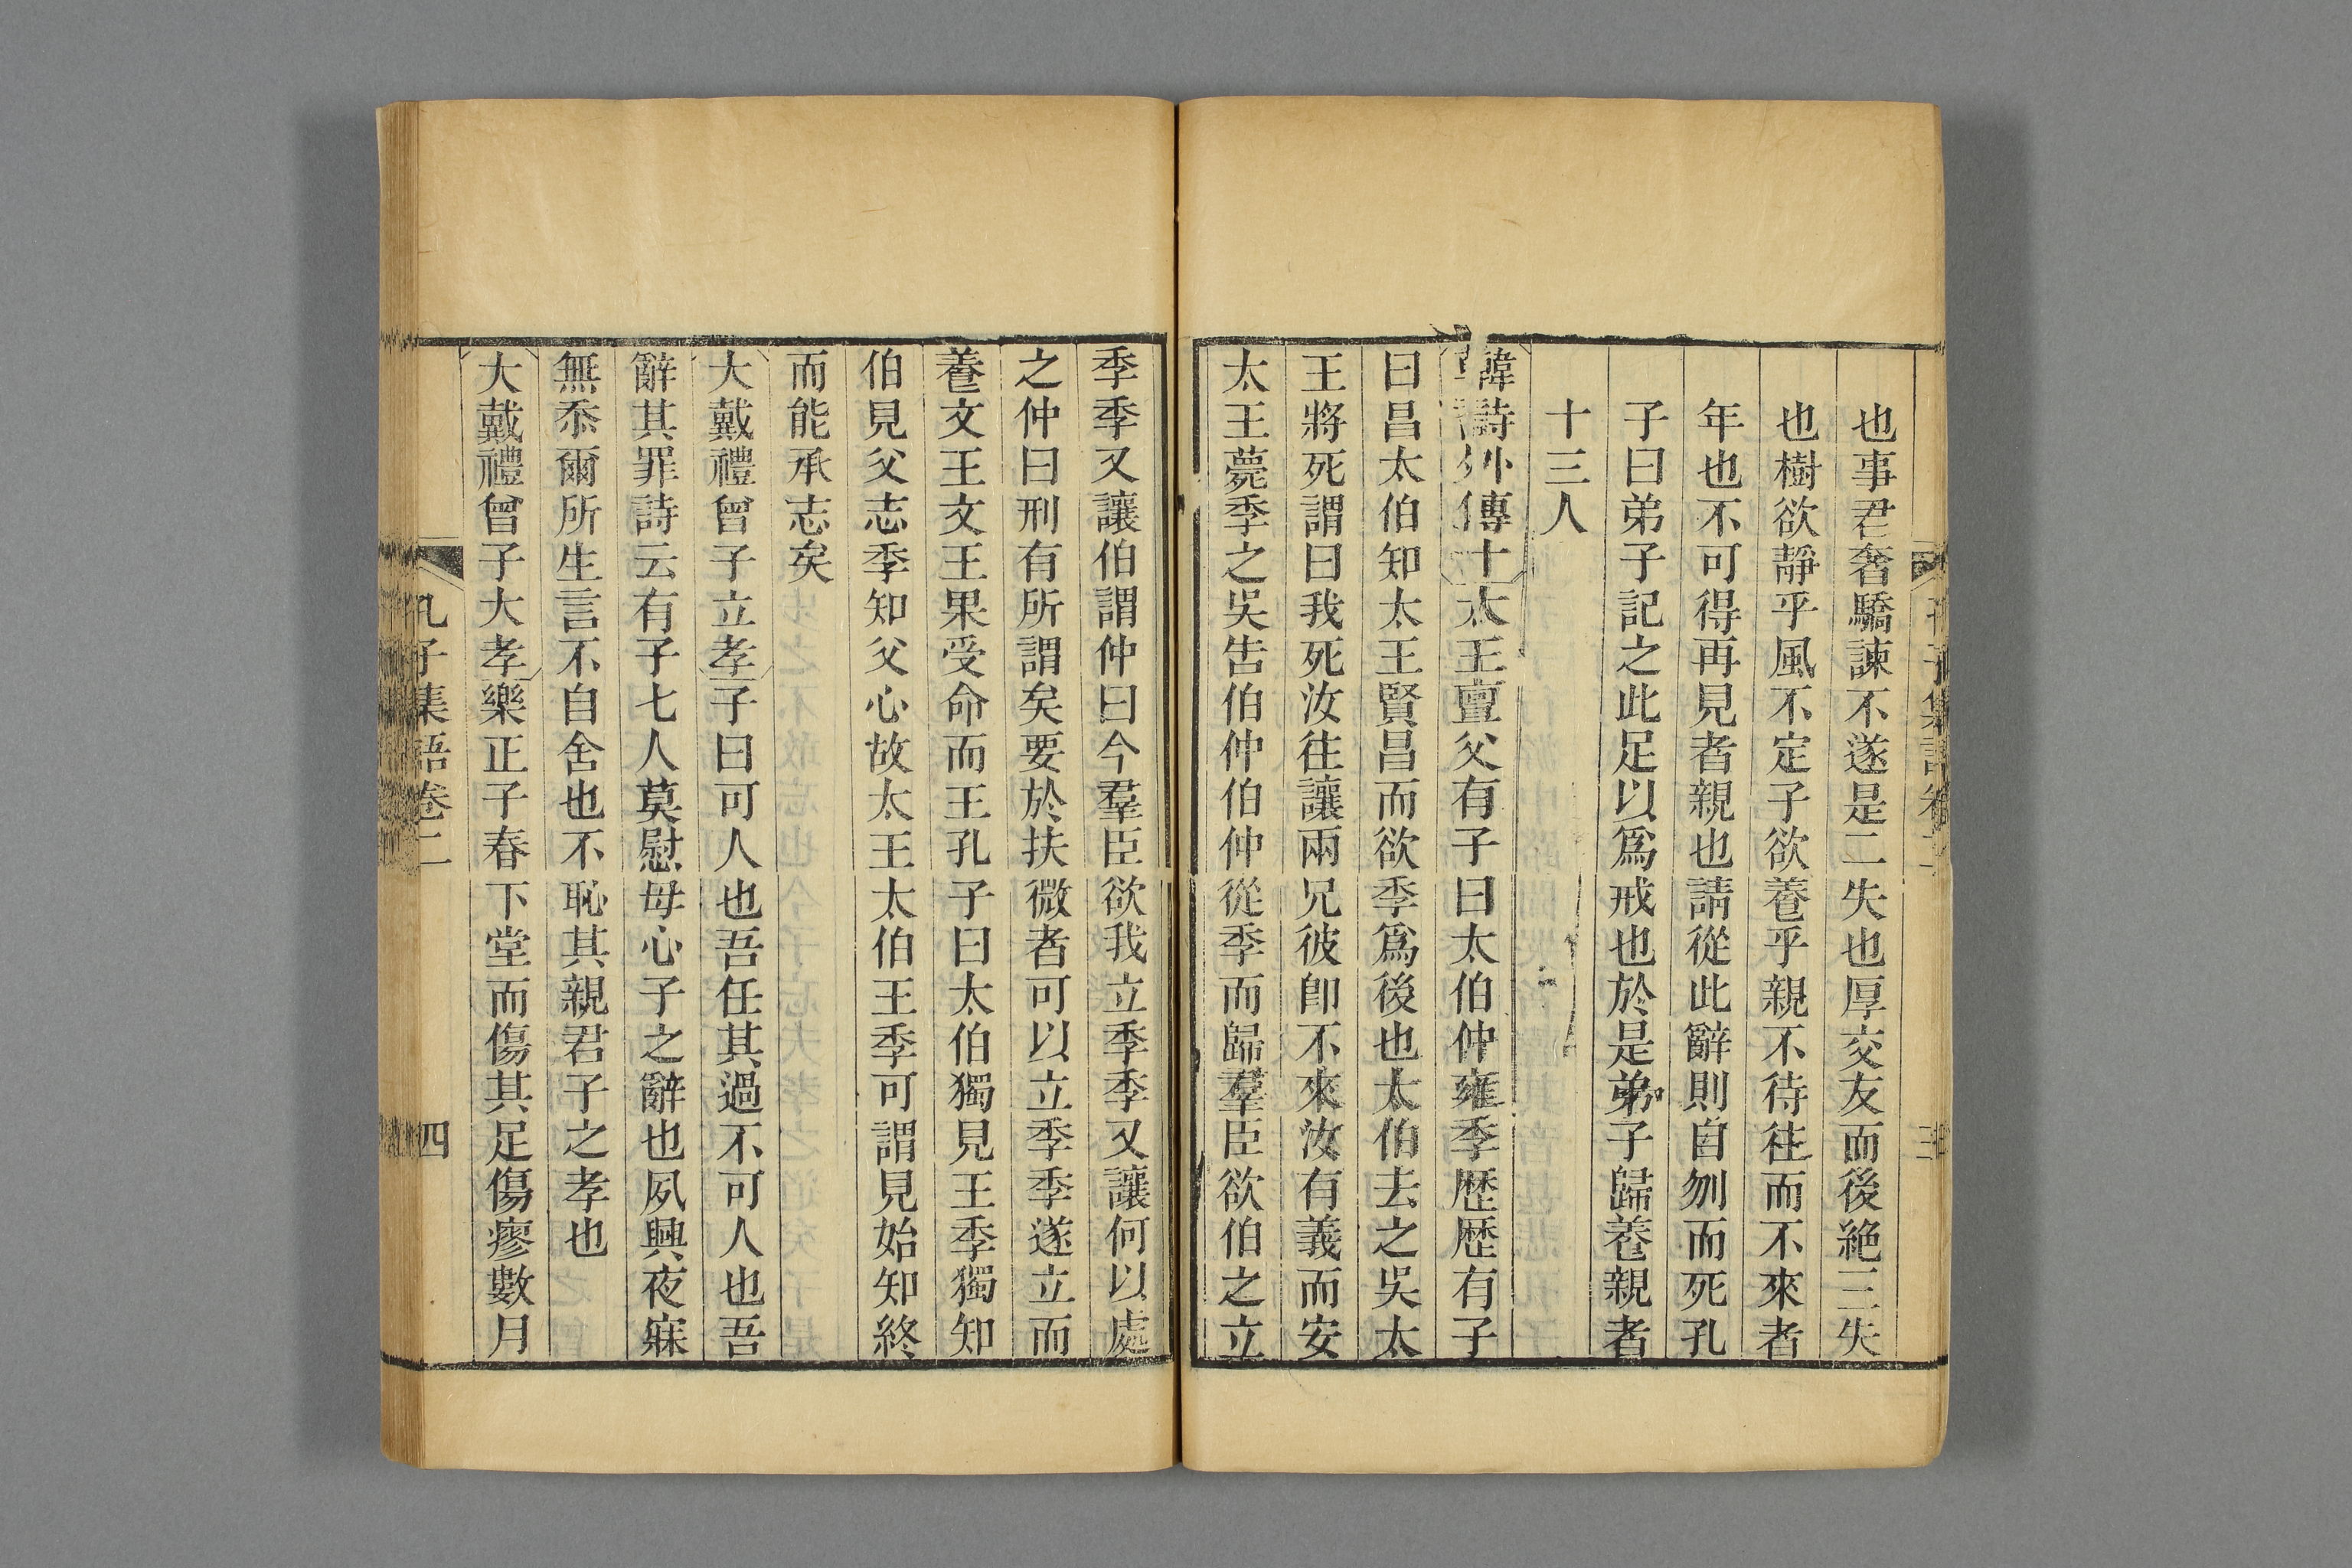 也事君奢驕諫不遂是二失也厚交友而後絶三失
也樹欲靜乎風不定子欲養乎親不待往而不來者
年也不可得再見者親也請從此辭則自刎而死孔
子曰弟子記之此足以爲戒也於是弟子歸養親者
十三人
韓詩外傳十太王亶父有子曰太伯仲雍季歷歷有子
曰昌太伯知太王賢昌而欲季爲後也太伯去之吳太
王將死謂曰我死汝往讓兩兄彼卽不來汝有義而安
太王薨季之吳告伯仲伯仲從季而歸羣臣欲伯之立
季季又讓伯謂仲曰今羣臣欲我立季季又讓何以處
之仲曰刑有所謂矣要於扶微者可以立季季遂立而
養文王文王果受命而王孔子曰太伯獨見王季獨知
伯見父志季知父心故太王太伯王季可謂見始知終
而能承志矣
大戴禮曾子立孝子曰可人也吾任其過不可人也吾
辭其罪詩云有子七人莫慰母心子之辭也夙興夜寐
無忝爾所生言不自舍也不恥其親君子之孝也
大戴禮曾子大孝樂正子春下堂而傷其足傷瘳數月
孔子集語卷二
四